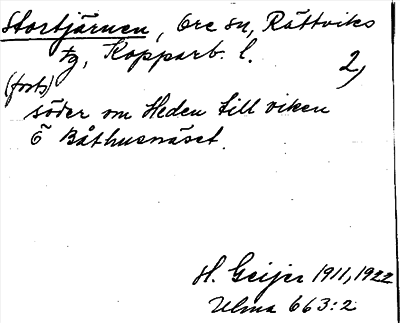 Stortjärnen, Ore sn, Rättviks
tg, Kopparb. l.
2,
(forts)
söder om Heden till viken
Ö Båthusnäset.
H. Geijer 1911, 1922
Ulma 663:2